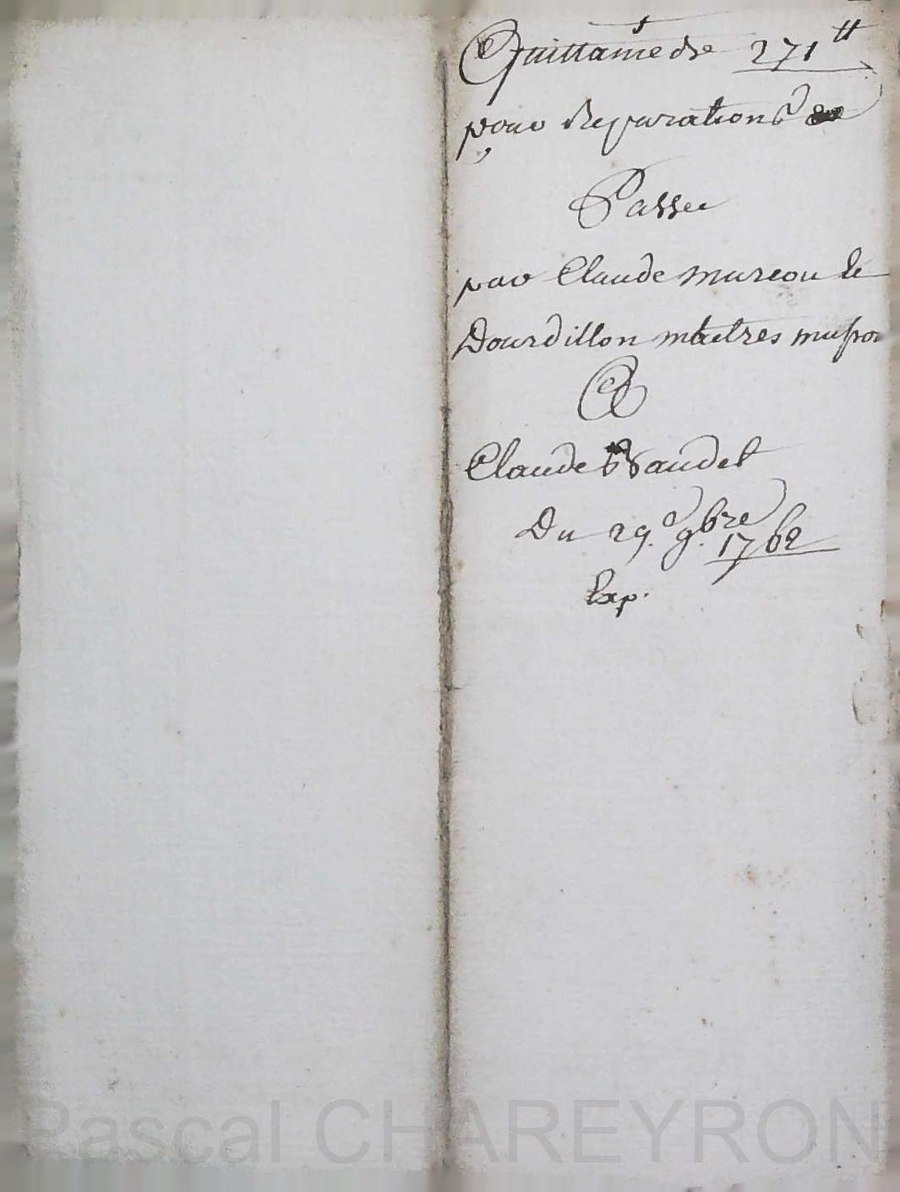 Quittance de 271tt
pour Reparations
Passee
par Claude mureou &
Dourdillon maitres masson
A
Claude Baudet
Du 29e 9bre 1762
Exp.
Pascal CHAREYRON